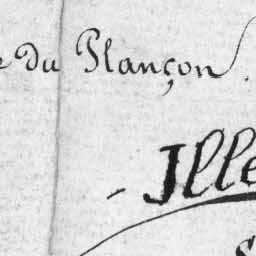 du Plançon.
- Ille